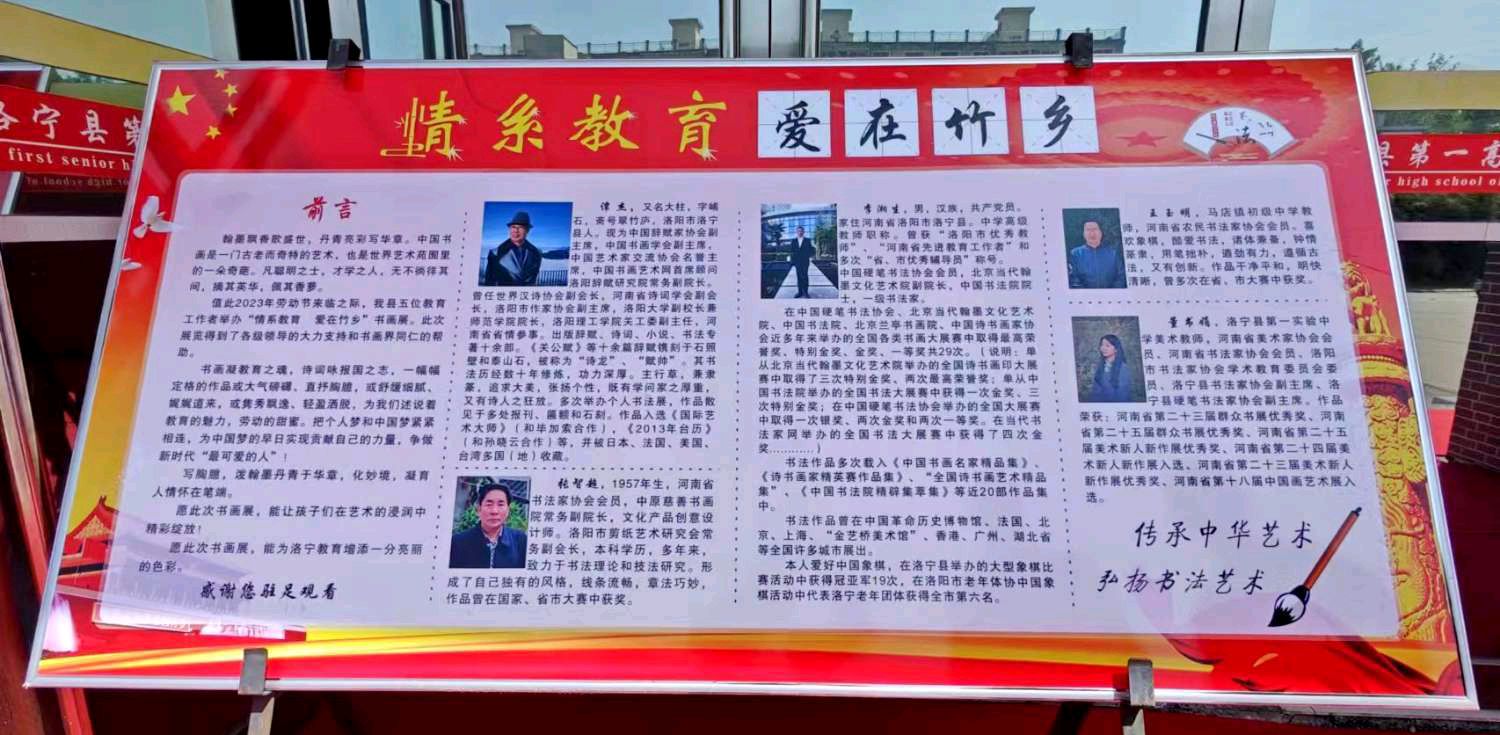 洛宁县第
first senior h
县第一高
r high school o
情系教育 爱在竹乡
前言
翰墨飘香歌盛世，丹青亮彩写华章。中国书
画是一门古老而奇特的艺术，也是世界艺术范围里
的一朵奇葩。凡聪明之士，才学之人，无不徜徉其
间，摘其英华，佩其香萝。
值此2023年劳动节来临之际，我县五位教育
工作者举办“情系教育 爱在竹乡”书画展。此次
展览得到了各级领导的大力支持和书画界同仁的帮
助。
书画凝教育之魂，诗词咏报国之志，一幅幅
定格的作品或大气磅礴、直抒胸臆，或舒缓细腻、
娓娓道来，或隽秀飘逸、轻盈洒脱，为我们述说着
教育的魅力，劳动的甜蜜。把个人梦和中国梦紧紧
相连，为中国梦的早日实现贡献自己的力量，争做
新时代“最可爱的人”！
写胸臆，泼翰墨丹青于华章，化妙境，凝育
人情怀在笔端。
愿此次书画展，能让孩子们在艺术的浸润中
精彩绽放！
愿此次书画展，能为洛宁教育增添一分亮丽
的色彩。
感谢您驻足观看
谭杰，又名大柱，字峬
石，斋号翠竹庐，洛阳市洛宁
县人。现为中国辞赋家协会副
主席，中国书画学会副主席，
中国艺术家交流协会名誉主
席，中国书画艺术网首席顾问
洛阳辞赋研究院常务副院长。
曾任世界汉诗协会副会长，河南省诗词学会副会
长，洛阳市作家协会副主席，洛阳大学副校长兼
师范学院院长，洛阳理工学院关工委副主任，河
南省省情参事。出版辞赋、诗词、小说、书法专
著十余部。《关公赋》等十余篇辞赋镌刻于石照
壁和泰山石，被称为“诗龙”、“赋帅”。其书
法历经数十年修炼，功力深厚。主行草，兼隶
篆，追求大美，张扬个性，既有学问家之厚重，
又有诗人之狂放。多次举办个人书法展，作品散
见于多处报刊、匾额和石刻。作品入选《国际艺
术大师》（和毕加索合作），《2013年台历》
（和孙晓云合作）等，并被日本、法国、美国、
台湾多国（地）收藏。
张智超，1957年生，河南省
书法家协会会员，中原慈善书画
院常务副院长，文化产品创意设
计师。洛阳市剪纸艺术研究会常
务副会长，本科学历，多年来，
致力于书法理论和技法研究。形
成了自己独有的风格，线条流畅，章法巧妙，
作品曾在国家、省市大赛中获奖。
李湘生，男，汉族，共产党员。
家住河南省洛阳市洛宁县。中学高级
教师职称。曾获“洛阳市优秀教
师”、“河南省先进教育工作者”和
多次“省、市优秀辅导员”称号。
中国硬笔书法协会会员，北京当代翰
墨文化艺术院副院长、中国书法院院
士，一级书法家。
在中国硬笔书法协会、北京当代翰墨文化艺术
院、中国书法院、北京兰亭书画院、中国诗书画家协
会近多年来举办的全国各类书画大展赛中取得最高荣
誉奖、特别金奖、金奖、一等奖共29次。（说明：单
从北京当代翰墨文化艺术院举办的全国诗书画印大展
赛中取得了三次特别金奖、两次最高荣誉奖；单从中
国书法院举办的全国书法大展赛中获得一次金奖、三
次特别金奖；在中国硬笔书法协会举办的全国大展赛
中取得一次银奖、两次金奖和两次一等奖。在当代书
法家网举办的全国书法大展赛中获得了四次金
奖…………）
书法作品多次载入《中国书画名家精品集》、
《诗书画家精英赛作品集》、“全国诗书画艺术精品
集”、《中国书法院精辟集萃集》等近20部作品集
中。
书法作品曾在中国革命历史博物馆、法国、北
京、上海、“金艺桥美术馆”、香港、广州、湖北省
等全国许多城市展出。
本人爱好中国象棋，在洛宁县举办的大型象棋比
赛活动中获得冠亚军19次，在洛阳市老年体协中国象
棋活动中代表洛宁老年团体获得全市第六名。
王玉明，马店镇初级中学教
师，河南省农民书法家协会会员。喜
欢象棋，酷爱书法，诸体兼备，钟情
篆隶，用笔拙朴，遒劲有力，遵循古
法，又有创新。作品干净平和，明快
清晰，曾多次在省、市大赛中获奖。
董书娟，洛宁县第一实验中
学美术教师，河南省美术家协会会
员、河南省书法家协会会员、洛阳
市书法家协会学术教育委员会委
员、洛宁县书法家协会副主席、洛
宁县硬笔书法家协会副主席。作品
荣获：河南省第二十三届群众书展优秀奖、河南
省第二十五届群众书展优秀奖、河南省第二十五
届美术新人新作展优秀奖、河南省第二十四届美
术新人新作展入选、河南省第二十三届美术新人
新作展优秀奖、河南省第十八届中国画艺术展入
选。
传承中华艺术
弘扬书法艺术